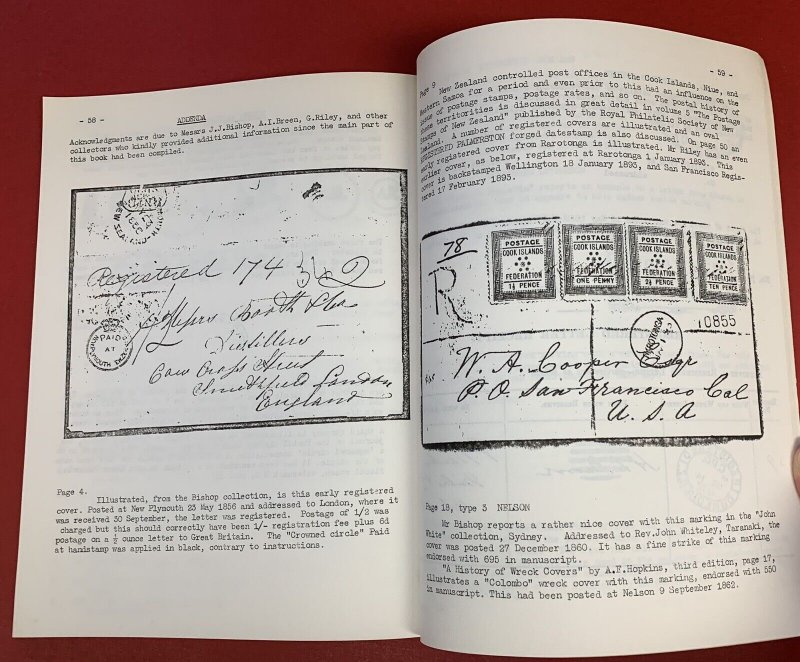 - 58 -
ADDENDA
Acknowledgments are due to Messrs J.J.Bishop, A.I.Breen, G.Riley, and other
collectors who kindly provided additional information since the main part of
this book had been compiled.
NEW ZEALAND
Registered 174
Messrs Booth & Co
Distillers
Cow Cross Street
Smithfield London
England
PAID
AT
Page 4.
Illustrated, from the Bishop collection, is this early registered
cover. Posted at New Plymouth 23 May 1856 and addressed to London, where it
was received 30 September, the letter was registered. Postage of 1/2 was
charged but this should correctly have been 1/- registration fee plus 6d
postage on a ½ ounce letter to Great Britain. The "Crowned circle" Paid
at handstamp was applied in black, contrary to instructions.
- 59 -
Page 9
New Zealand controlled post offices in the Cook Islands, Niue, and
Western Samoa for a period and even prior to this had an influence on the
issue of postage stamps, postage rates, and so on. The postal history of
these territories is discussed in great detail in volume 5 "The Postage
Stamps of New Zealand" published by the Royal Philatelic Society of New
Zealand. A number of registered covers are illustrated and an oval
REGISTERED PALMERSTON forged datestamp is also discussed. On page 50 an
early registered cover from Rarotonga is illustrated. Mr Riley has an even
earlier cover, as below, registered at Rarotonga 1 January 1893. This
cover is backstamped Wellington 18 January 1893, and San Francisco Regis-
tered 17 February 1893.
78
R
POSTAGE
COOK ISLANDS
FEDERATION
1½ PENCE
POSTAGE
COOK ISLANDS
FEDERATION
ONE PENNY
POSTAGE
COOK ISLANDS
FEDERATION
2½ PENCE
POSTAGE
COOK ISLANDS
FEDERATION
TEN PENCE
10855
RAROTONGA
W. A. Cooper Esqr
P.O. San Francisco Cal
U. S. A
Page 18, type 3 NELSON
Mr Bishop reports a rather nice cover with this marking in the "John
White" collection, Sydney. Addressed to Rev.John Whiteley, Taranaki, the
cover was posted 27 December 1860. It has a fine strike of this marking
endorsed with 695 in manuscript.
"A History of Wreck Covers" by A.E.Hopkins, third edition, page 17,
illustrates a "Colombo" wreck cover with this marking, endorsed with 550
in manuscript. This had been posted at Nelson 9 September 1862.